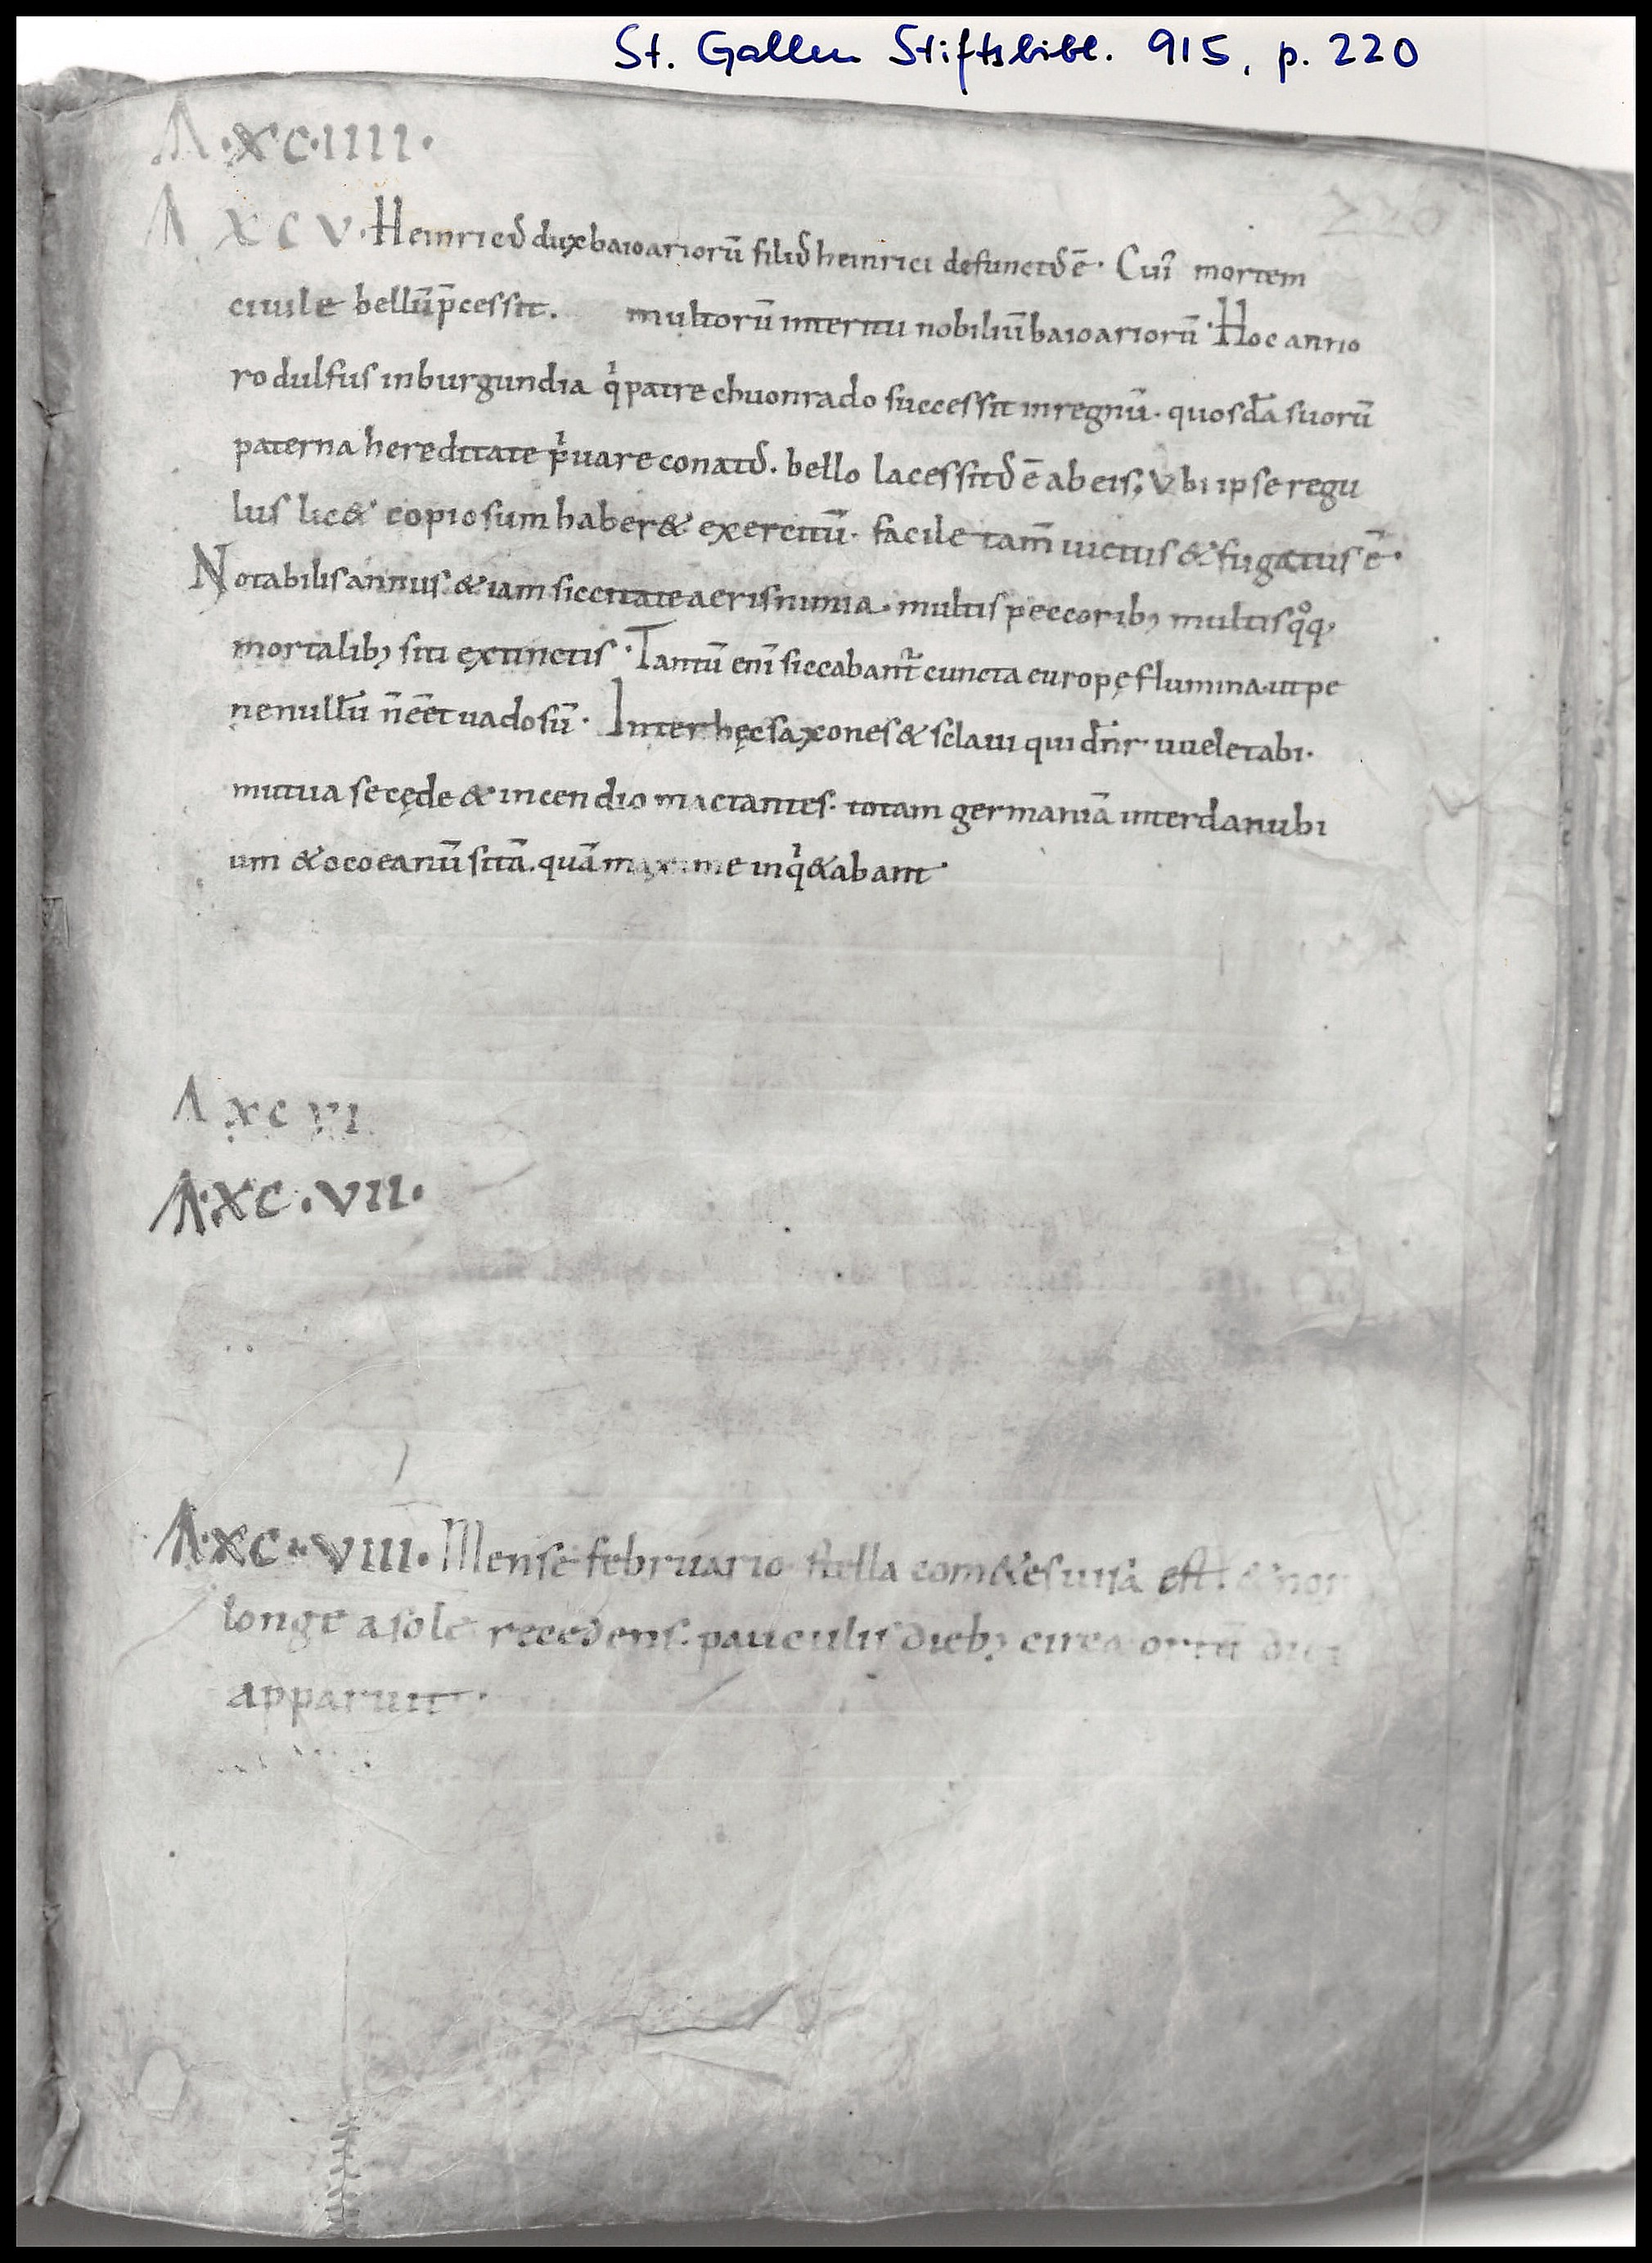 St. Gallen Stiftsbibl. 915, p. 220
220
A·XC·IIII·
A XC V· Heinric᷒ dux baioariorū filı᷒ heinrici defunct᷒ ē· Cuı᷒ mortem
ciuile bellū p̄cessit. multorū interitu nobiliū baioariorū· Hoc anno
rodulfus in burgundia qͥ patre chuonrado successit in regnū· quosdā suorū
paterna hereditate pͥuare conat᷒. bello lacessit᷒ ē ab eis; Vbi ipse regu
lus lic& copiosum haber& exercitū· facile tam̄ uictus & fugatus ē·
Notabilis annus· & iam siccitate aeris nimia· multis peccorib; multisq; qͦq;
mortalib; siti extinctis· Tantū enī siccabant᷑ cuncta europę flumina· ut pe
ne nullū n̄ eēt uadosū· Inter hęc saxones & sclaui qui dn̄r uueletabi·
mutua se cęde & incendio mactantes· totam germaniā inter danubi
um & ococeanū sitā. quā maxime inqͥ&abant·
A XC VI
A·XC·VII·
A·XC·VIII· Mense februario stella com&es uisa est· & non
longe a sole recedens· pauculis dieb; circa ortū diei
apparuit·